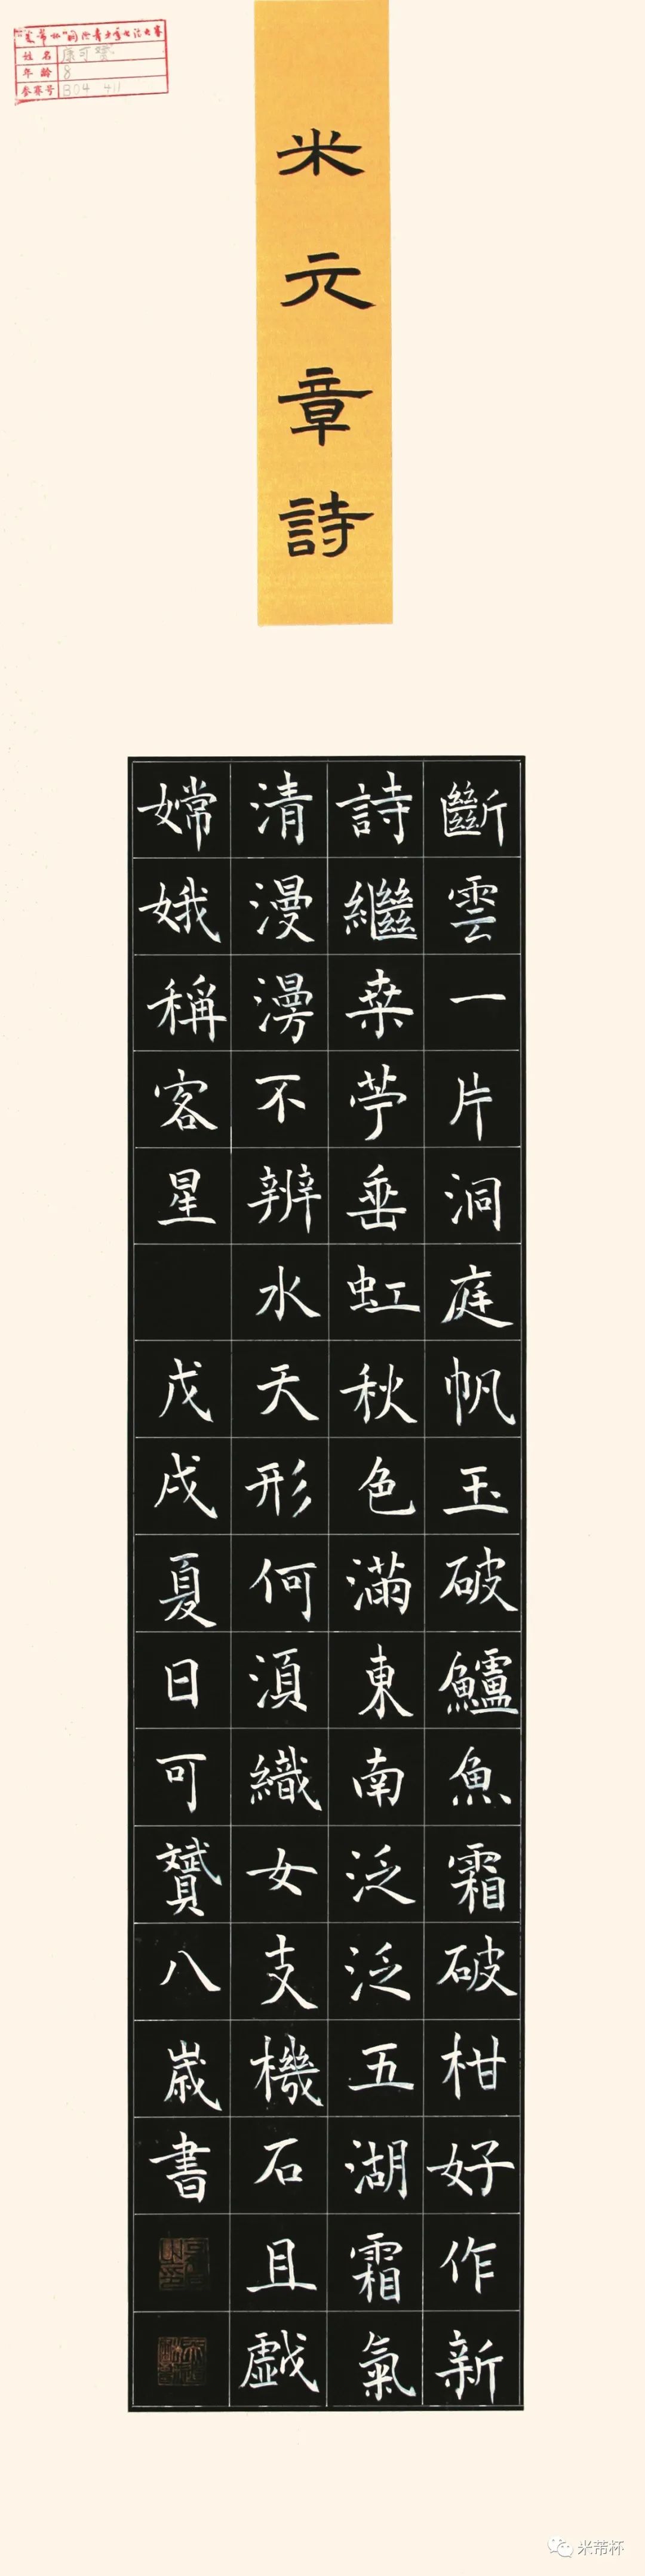 姓名 康可赟
年龄 8
参赛号 B04 411
米元章詩
斷雲一片洞庭帆玉破鱸魚霜破柑好作新
詩繼桒苧垂虹秋色滿東南泛泛五湖霜氣
清漫漫不辨水天形何須織女支機石且戲
嫦娥稱客星 戊戌夏日可贇八歲書
米芾杯